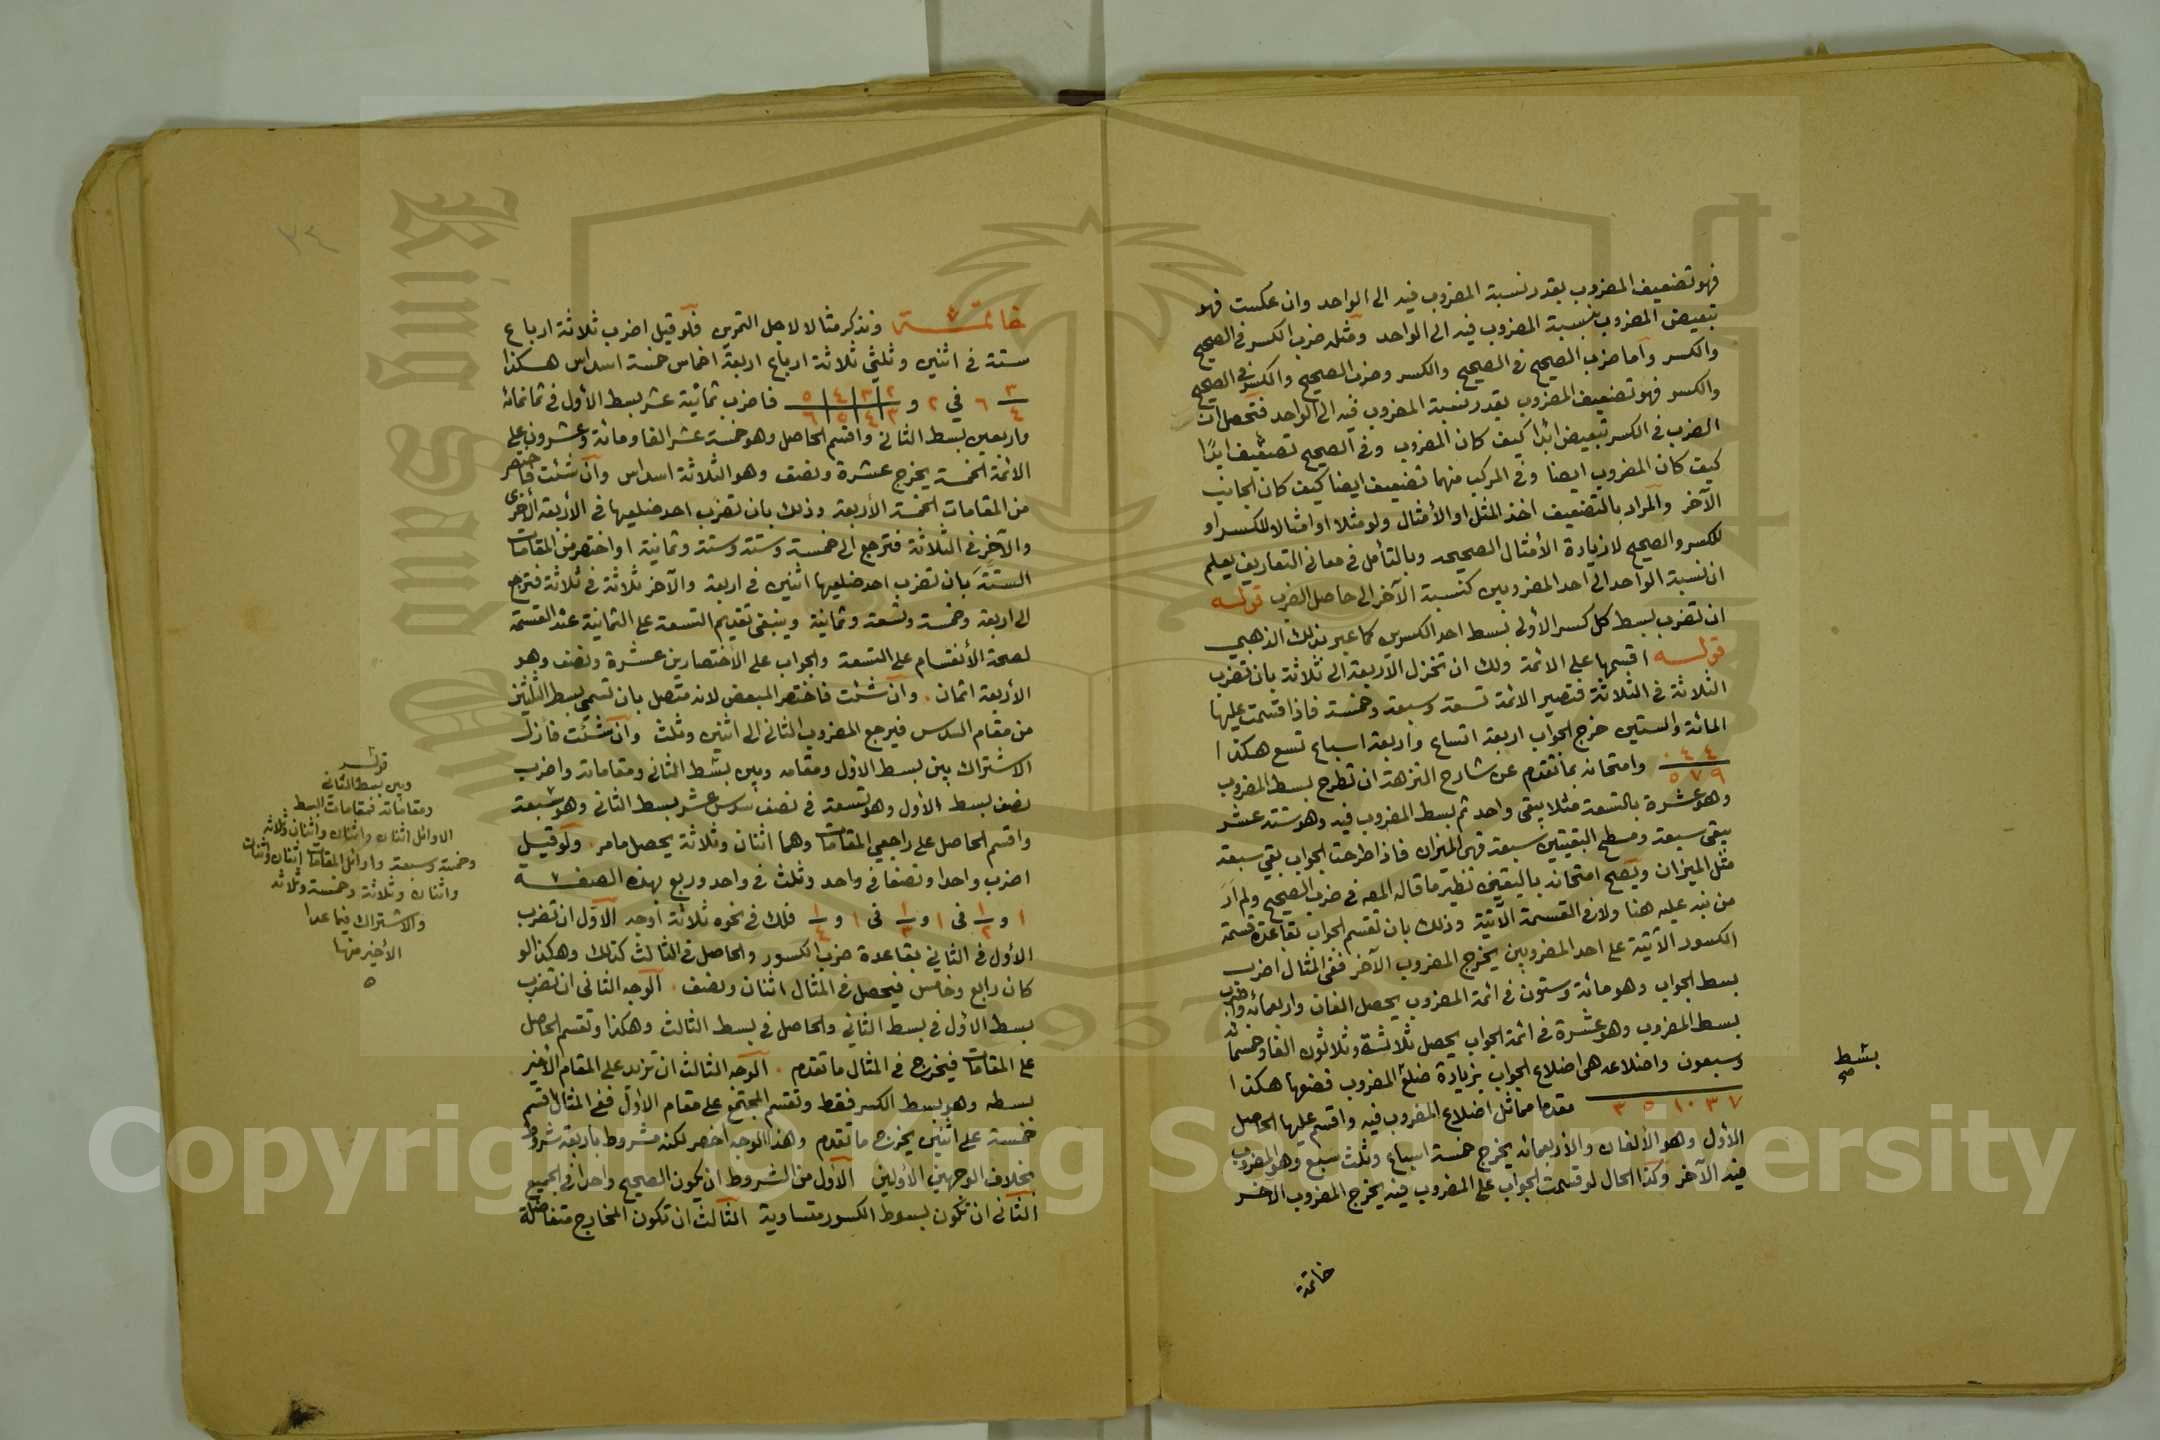 فهو تضعيف المضروب بقدر نسبة المضروب فيه الى الواحد وان عكست فهو
تبعيض المضروب بنسبة المضروب فيه الى الواحد ومثله ضرب الكسر في الصحيح
والكسر وأما ضرب الصحيح في الصحيح والكسر وضرب الصحيح والكسر في الصحيح
والكسر فهو تضعيف المضروب بقدر نسبة المضروب فيه الى الواحد فتحصل ان
الضرب في الكسر تبعيض ابدا كيف كان المضروب وفي الصحيح تضعيف ابدًا
كيف كان المضروب ايضا وفي المركب منهما تضعيف ايضا كيف كان الجانب
الآخر والمراد بالتضعيف اخذ المثل او الأمثال ولو مثلا او امثالا للكسر او
للكسر والصحيح لا زيادة الأمثال الصحيحه وبالتأمل في معاني التعاريف يعلم
ان نسبة الواحد الى احد المضروبين كنسبة الآخر الى حاصل الضرب قوله
ان تضرب بسط كل كسر الأولى بسط احد الكسرين كما عبر بذلك الذهبي
قوله اقسمها على الائمة ولك ان تختزل الأربعة الى ثلاثة بان تضرب
الثلاثة في الثلاثة فتصير الائمة تسعة وسبعة وخمسة فاذا قسمت عليها
المائة والستين خرج الجواب اربعة اتساع واربعة اسباع تسع هكذا ا
٤ ٤ ٠
٩ ٧ ٥ وامتحانه بما تقدم عن شارح النزهة ان تطرح بسط المضروب
وهو عشرة بالتسعة مثلا يبقى واحد ثم بسط المضروب فيه وهو ستة عشر
يبقى سبعة ومسطح البقيتين سبعة فهي الميزان فاذا طرحت الجواب بقي سبعة
مثل الميزان ويصح امتحانه باليقين نظير ما قاله المصه في ضرب الصحيح ولم ار
من نبه عليه هنا ولا في القسمة الآتية وذلك بان تقسم الجواب بقاعدة قسمة
الكسور الآتية على احد المضروبين يخرج المضروب الآخر ففي المثال اضرب
بسط الجواب وهو مائة وستون في ائمة المضروب يحصل الفان واربعمائة واضرب
بسط المضروب وهو عشرة في ائمة الجواب يحصل ثلاثة وثلاثون الفا وخمسمائة
وسبعون واضلاعه هي اضلاع الجواب بزيادة ضلع المضروب فضعها هكذا ا
٧ ٣ ١٠ ٥ ٣ مقدما مماثل اضلاع المضروب فيه واقسم عليها الحاصل
الأول وهو الألفان والأربعمائه يخرج خمسة اسباع وثلث سبع وهو المضروب
فيه الآخر وكذا الحال لو قسمت الجواب على المضروب فيه يخرج المضروب الآخر
بسط
صح
خاتمة
٣٤
خاتمة ونذكر مثالا لاجل التمرين فلو قيل اضرب ثلاثة ارباع
ستة في اثنين وثلثي ثلاثة ارباع اربعة اخماس خمسة اسداس هكذا
٣
٤ ٦ في ٢ و ٢ ٣ ٤ ٥
٣ ٤ ٥ ٦ فاضرب ثمانية عشر بسط الأول في ثمانمائة
واربعين بسط الثاني واقسم الحاصل وهو خمسة عشر الفا ومائة وعشرون على
الائمة الخمسة يخرج عشرة ونصف وهو الثلاثة اسداس وان شئت فاختصر
من المقامات الخمسة الأربعة وذلك بان تضرب احد ضلعيها في الأربعة الأخرى
والآخر في الثلاثة فترجع الى خمسة وستة وستة وثمانية او اختصر من المقامات
الستة بان تضرب احد ضلعيها اثنين في اربعة والآخر ثلاثة في ثلاثة فترجع
الى اربعة وخمسة وتسعة وثمانية وينبغي تقديم التسعة على الثمانية عند القسمة
لصحة الأنقسام على التسعة والجواب على الاختصارين عشرة ونصف وهو
الأربعة اثمان . وان شئت فاختصر المبعض لانه متصل بان تسمي بسط الثلثين
من مقام السدس فيرجع المضروب الثاني الى اثنين وثلث وان شئت فأزل
الاشتراك بين بسط الأول ومقامه وبين بسط الثاني ومقاماته واضرب
نصف بسط الأول وهو تسعة في نصف سدس عشر بسط الثاني وهو سبعة
واقسم الحاصل على راجعي المقامات وهما اثنان وثلاثة يحصل مامر . ولو قيل
اضرب واحدا ونصفا في واحد وثلث في واحد وربع بهذه الصفة
١ و ١/٢ في ١ و ١/٣ في ١ و ١/٤ فلك في نحوه ثلاثة اوجه الاول ان تضرب
الأول في الثاني بقاعدة ضرب الكسور والحاصل في الثالث كذلك وهكذا لو
كان رابع وخامس فيحصل في المثال اثنان ونصف . الوجه الثاني ان تضرب
بسط الأول في بسط الثاني والحاصل في بسط الثالث وهكذا وتقسم الحاصل
على المقامات فيخرج في المثال ما تقدم . الوجه الثالث ان تزيد على المقام الأخير
بسطه وهو بسط الكسر فقط وتقسم المجتمع على مقام الأول ففي المثال اقسم
خمسة على اثنين يخرج ما تقدم وهذا الوجه اخصر لكنه مشروط باربعة شروط
بخلاف الوجهين الأولين الأول من الشروط ان يكون الصحيح واحدا في الجميع
الثاني ان تكون بسوط الكسور متساوية الثالث ان تكون المخارج متفاضلة
قوله
وبين بسط الثاني
ومقاماته فمقامات البسط
الاوائل اثنان واثنان واثنان وثلاثة
وخمسة وسبعة واوائل المقامات اثنان واثنان
واثنان وثلاثة وخمسة وثلاثة
والاشتراك فيما عدا
الأخير منها
٥
King Saud University
1957
Copyright © King Saud University